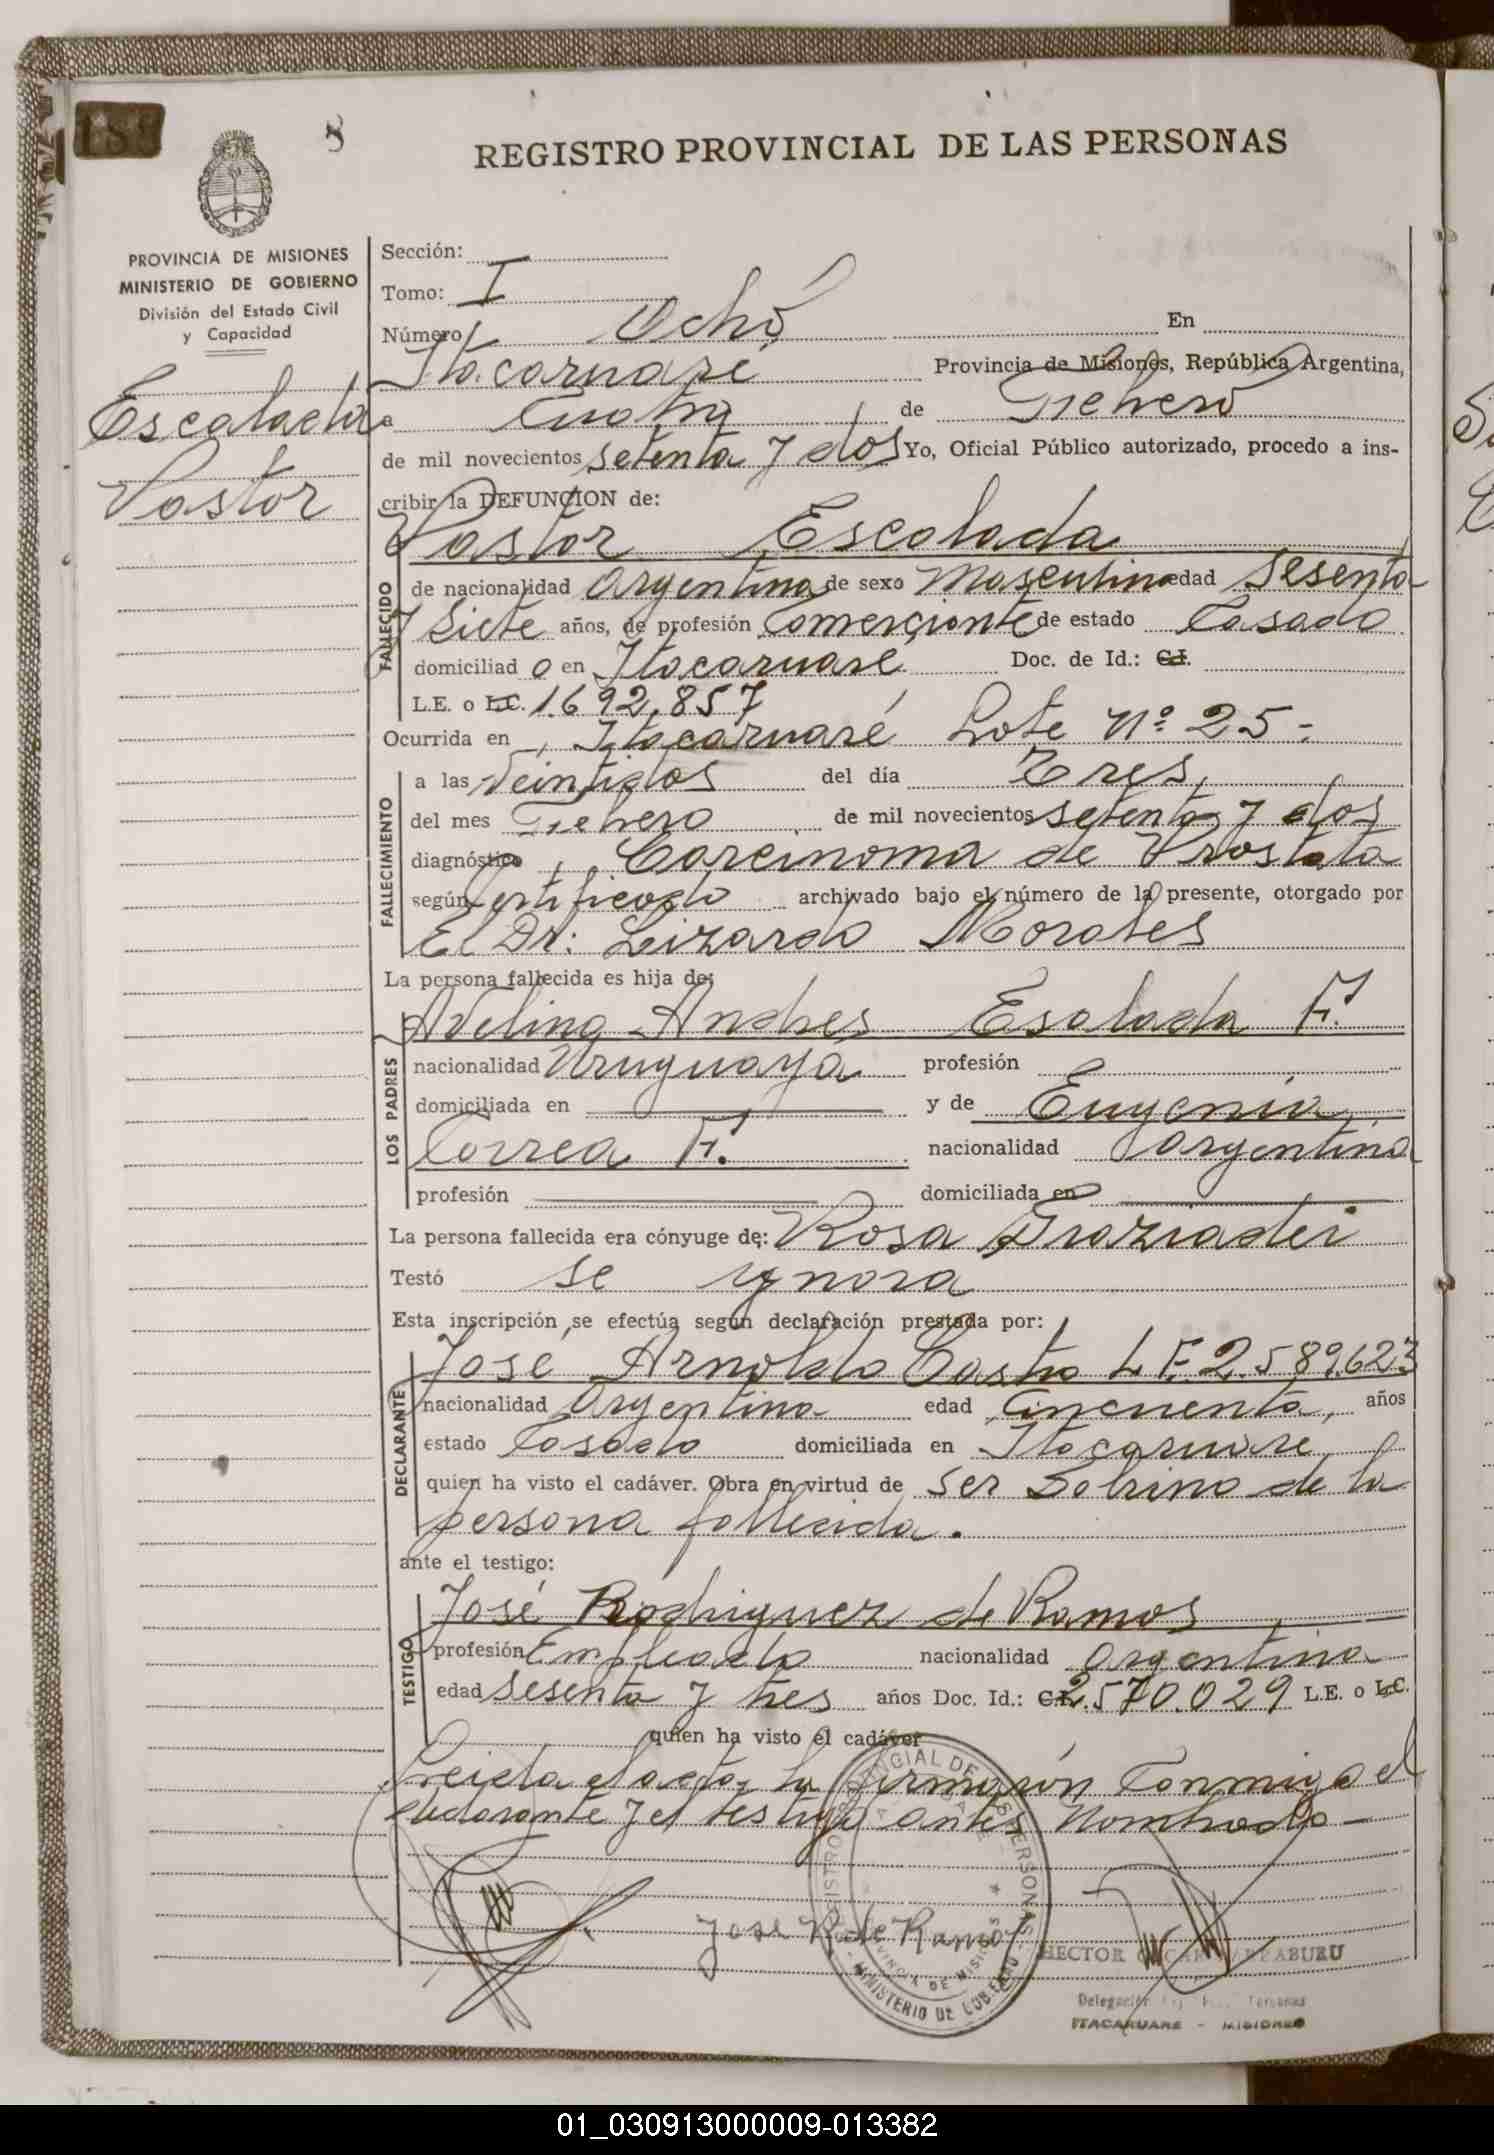 8
REGISTRO PROVINCIAL DE LAS PERSONAS
PROVINCIA DE MISIONES
MINISTERIO DE GOBIERNO
División del Estado Civil
y Capacidad
Escalada
Pastor
Sección:
Tomo: I
Número Ocho En
Itacaruaré Provincia de Misiones, República Argentina,
a Cuatro de Febrero
de mil novecientos setenta y dos Yo, Oficial Público autorizado, procedo a ins-
cribir la DEFUNCION de:
Pastor Escalada
FALLECIDO
de nacionalidad Argentina de sexo Masculino edad Sesenta
y Siete años, de profesión Comerciante de estado Casado
domiciliado en Itacaruaré Doc. de Id.: C.I.
L.E. o L.C. 1.692.857
Ocurrida en Itacaruaré Lote Nº 25-
FALLECIMIENTO
a las Veintidos del día Tres,
del mes Febrero de mil novecientos setenta y dos
diagnóstico Carcinoma de Prostata
según Certificado archivado bajo el número de la presente, otorgado por
El Dr: Lizardo Morales
La persona fallecida es hija de:
LOS PADRES
Avelino Andres Esalada F.
nacionalidad Uruguaya profesión
domiciliada en y de Eugenia
Correa F. nacionalidad Argentina
profesión domiciliada en
La persona fallecida era cónyuge de: Rosa Graziadei
Testó se ygnora
Esta inscripción se efectúa según declaración prestada por:
DECLARANTE
José Arnoldo Castro L.E. 2.589.623
nacionalidad Argentina edad Cincuenta, años
estado Casado domiciliada en Itacaruare
quien ha visto el cadáver. Obra en virtud de ser Sobrino de la
persona fallecida.
ante el testigo:
TESTIGO
José Rodriguez de Ramos
profesión Empleado nacionalidad Argentina
edad Sesenta y tres años Doc. Id.: C.I. 2.570.029 L.E. o L.C.
quien ha visto el cadáver
Leida el acta, la firmarón Conmigo el
declarante y el testigo antes Nombrado-
REGISTRO PROVINCIAL DE LAS PERSONAS
PROVINCIA DE MISIONES
MINISTERIO DE GOBIERNO
Jose R de Ramos
HECTOR OSCAR
Delegación
ITACARUARE - MISIONES
01_030913000009-013382